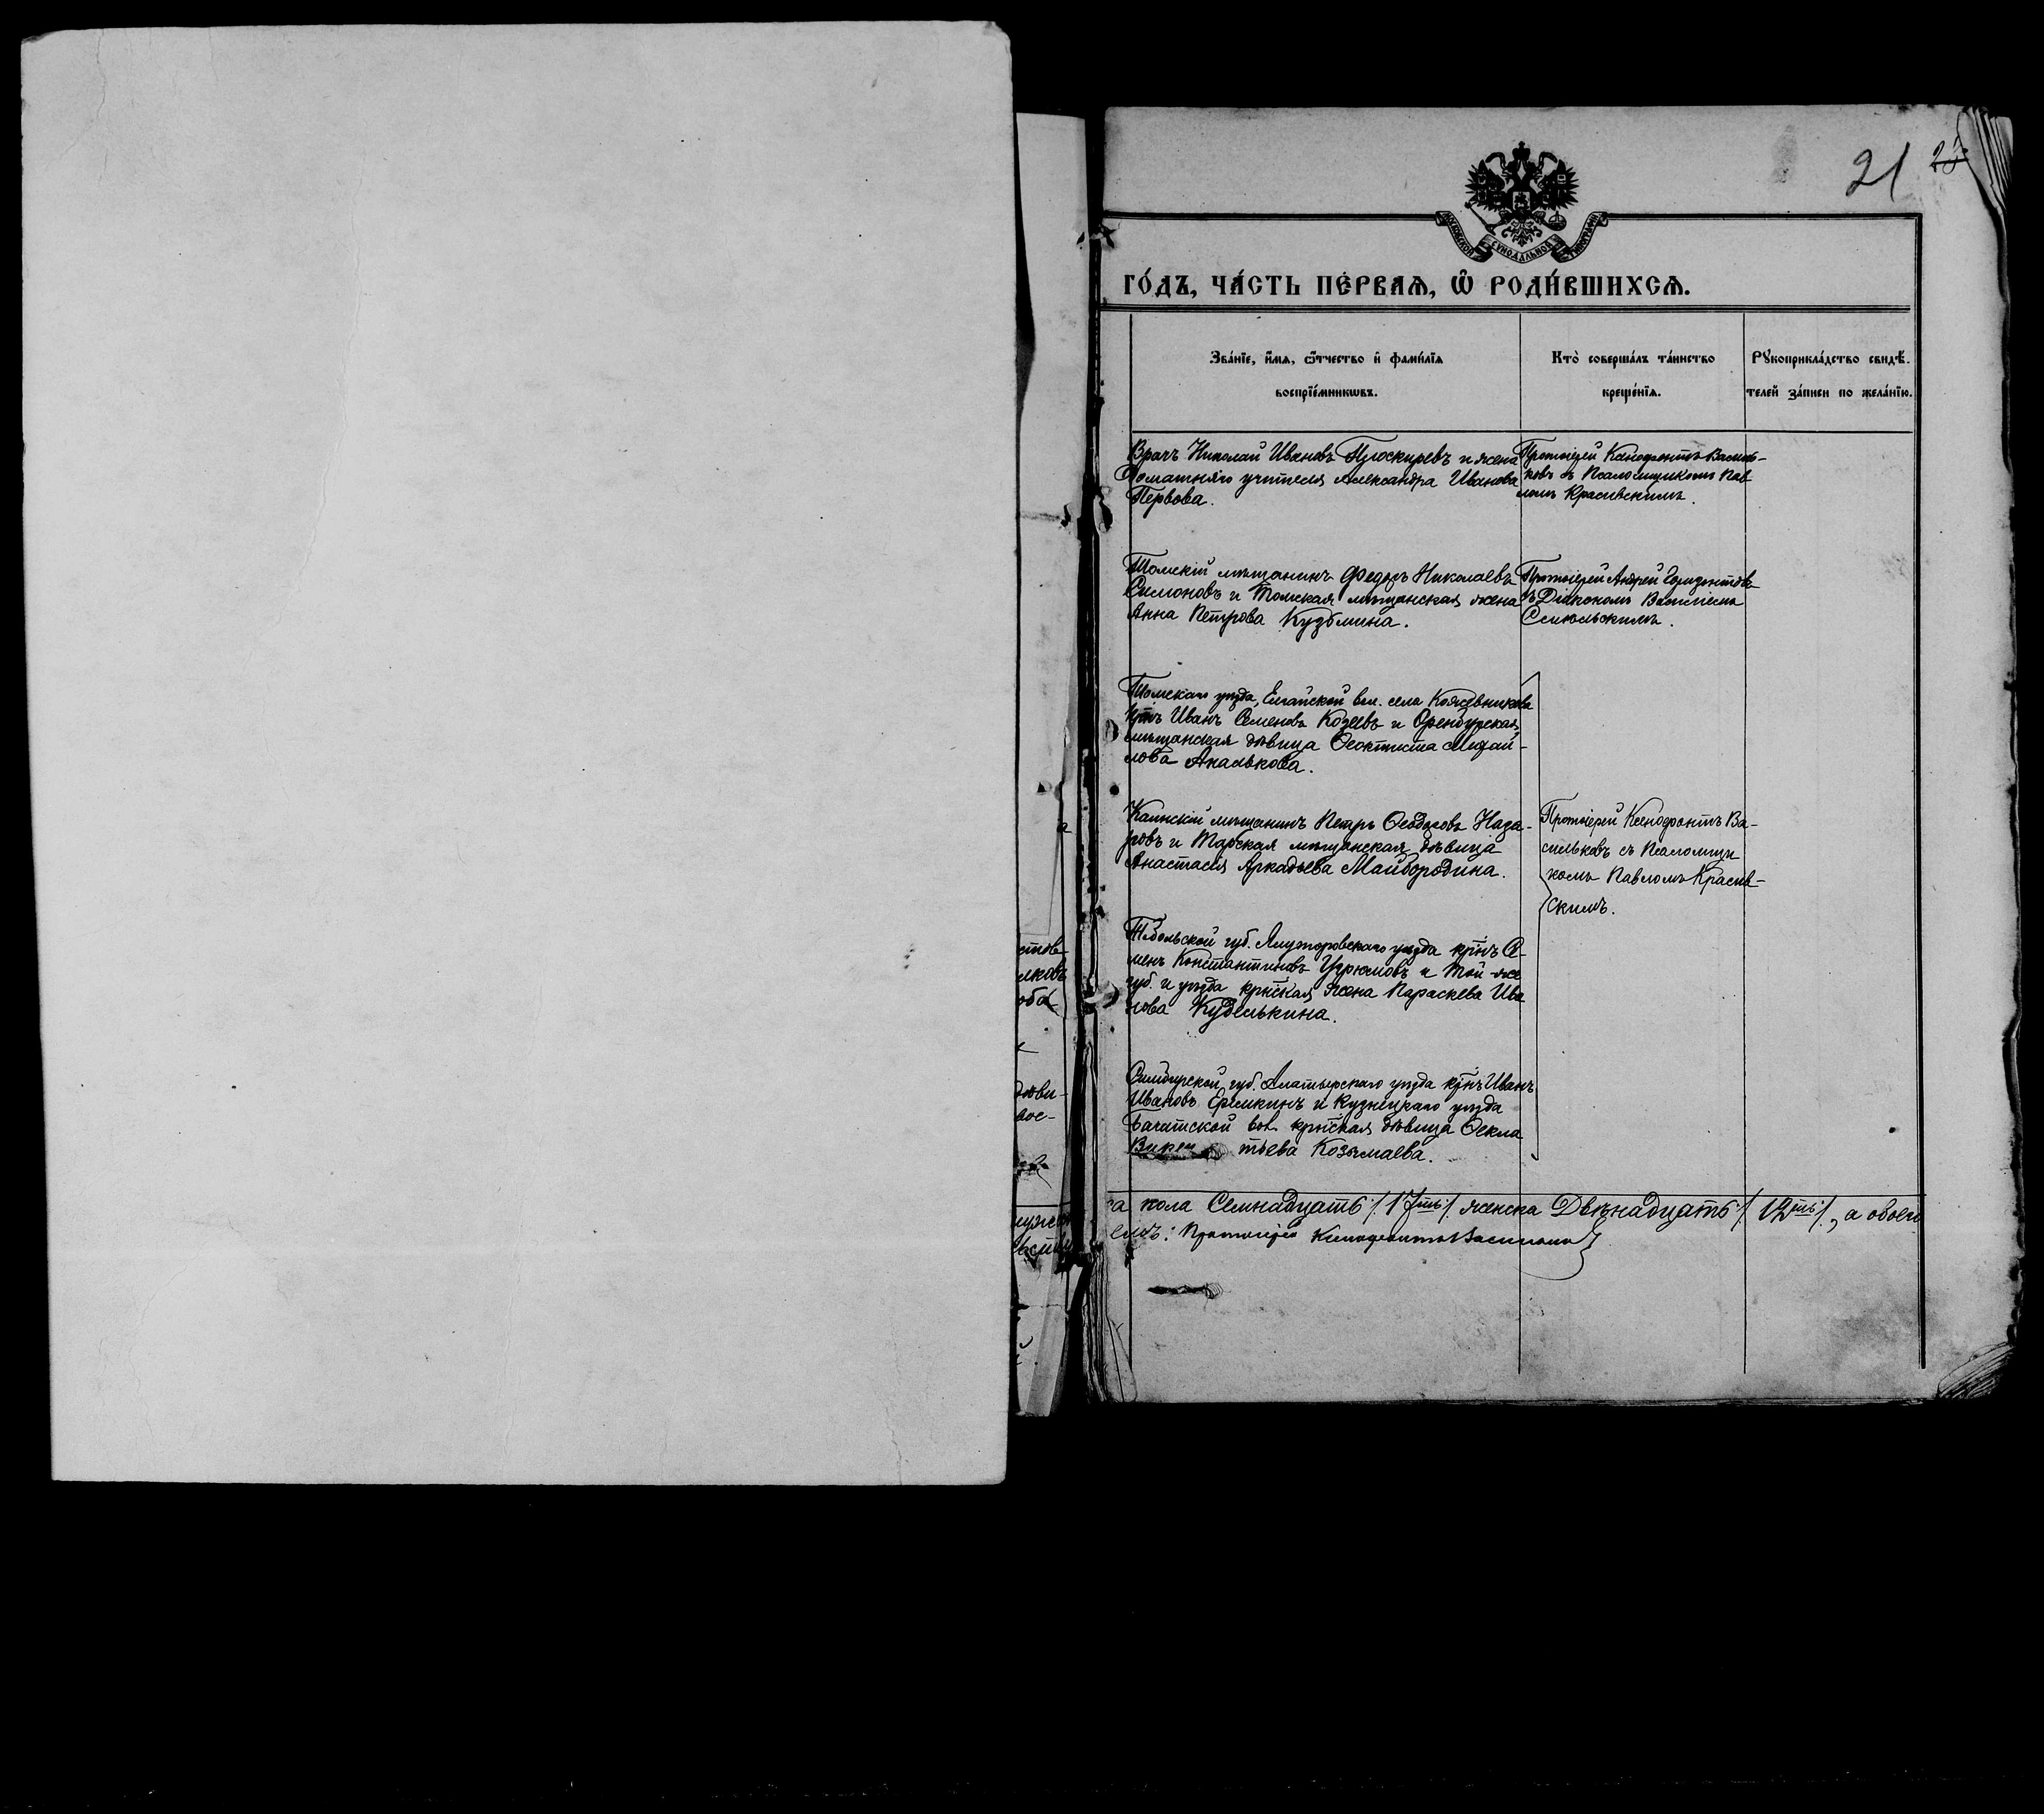 21 25
МОСКОВСКОЙ СУНОДАЛЬНОЙ ТИПОГРАФІИ
ГО́ДЪ, ЧА́СТЬ ПЕ́РВАѦ, Ѡ҆ РОДИ́ВШИХСѦ.
Зва́нїе, и҆́мѧ, ѻ҆́тчество и҆ фами́лїѧ
воспрїе́мникѡвъ.
Кто̀ соверша́лъ та́инство
креще́нїѧ.
Рꙋкоприкла́дство свидѣ́-
телей за́писи по жела́нїю.
Врачъ Николай Ивановъ Проскуревъ и жена
Домашняго учителя Александра Иванова
Первова.
Протоіерей Ксенофонтъ Василь-
ковъ съ Псаломщикомъ Пав
ломъ Красивскимъ.
Томскій мѣщанинъ Федоръ Николаевъ
Симоновъ и Томская мѣщанская жена
Анна Петрова Кузьмина.
Протоіерей Андрей
съ Діакономъ Василіемъ
Томскаго уѣзда, Елгайской вол. села Кожевникова
кр̃нъ Иванъ Семеновъ Козеевъ и Оренбургская
мѣщанская дѣвица Ѳеоктиста Михай-
лова Акалькова.
Каинскій мѣщанинъ Петръ Ѳеодоровъ Наза-
ровъ и Тарская мѣщанская дѣвица
Анастасія Аркадьева Майбородина.
Протоіерей Ксенофонтъ Ва-
сильковъ съ Псаломщи
комъ Павломъ Красив-
скимъ.
Тобольской губ. Ялуторовскаго уѣзда кр̃нъ Се-
менъ Константиновъ Угрюмовъ и той же
губ. и уѣзда кр̃нская жена Параскева Ива
нова Куделькина.
Симбирской губ. Алатырскаго уѣзда кр̃нъ Иванъ
Ивановъ Еремкинъ и Кузнецкаго уѣзда
Бачатской вол. кр̃нская дѣвица Ѳекла
тьева Козьмаева.
ка пола Семнадцать /.17ть/. женска Двѣнадцать /.12ть/., а обоего
емъ: Протоіерей Ксенофонтъ Васильковъ